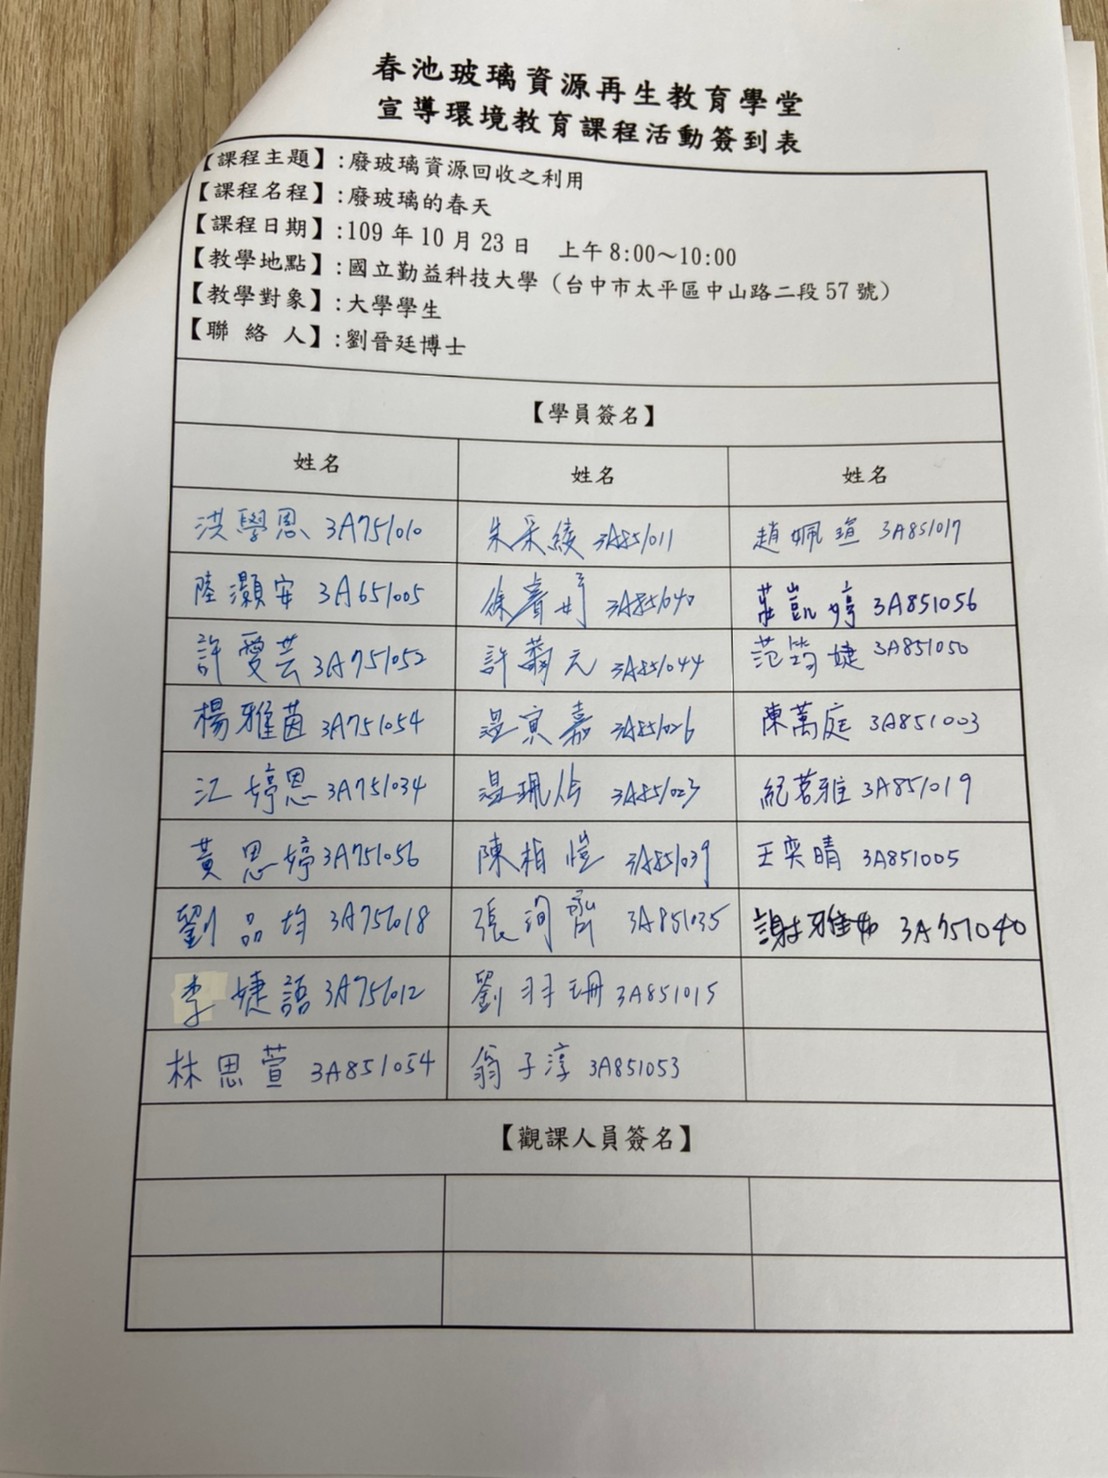 春池玻璃資源再生教育學堂
宣導環境教育課程活動簽到表
【課程主題】:廢玻璃資源回收之利用
【課程名程】:廢玻璃的春天
【課程日期】:109 年 10 月 23 日 上午 8:00～10:00
【教學地點】:國立勤益科技大學（台中市太平區中山路二段 57 號）
【教學對象】:大學學生
【聯 絡 人】:劉晉廷博士
【學員簽名】
姓名 姓名 姓名
洪學恩 3A751010 朱采綾 3A851011 趙姵瑄 3A851017
陸灝安 3A651005 徐睿妤 3A851040 莊凱婷 3A851056
許愛芸 3A751052 許 元 3A851044 范筠婕 3A851050
楊雅茵 3A751054 溫 嘉 3A851026 陳萬庭 3A851003
江婷恩 3A751034 溫珮伶 3A851023 紀茗雅 3A851019
黃思婷 3A751056 陳柏愷 3A851039 王奕晴 3A851005
劉品均 3A751018 張 齊 3A851035 謝雅 3A751040
李婕語 3A751012 劉羽珊 3A851015
林思萱 3A851054 翁子淳 3A851053
【觀課人員簽名】